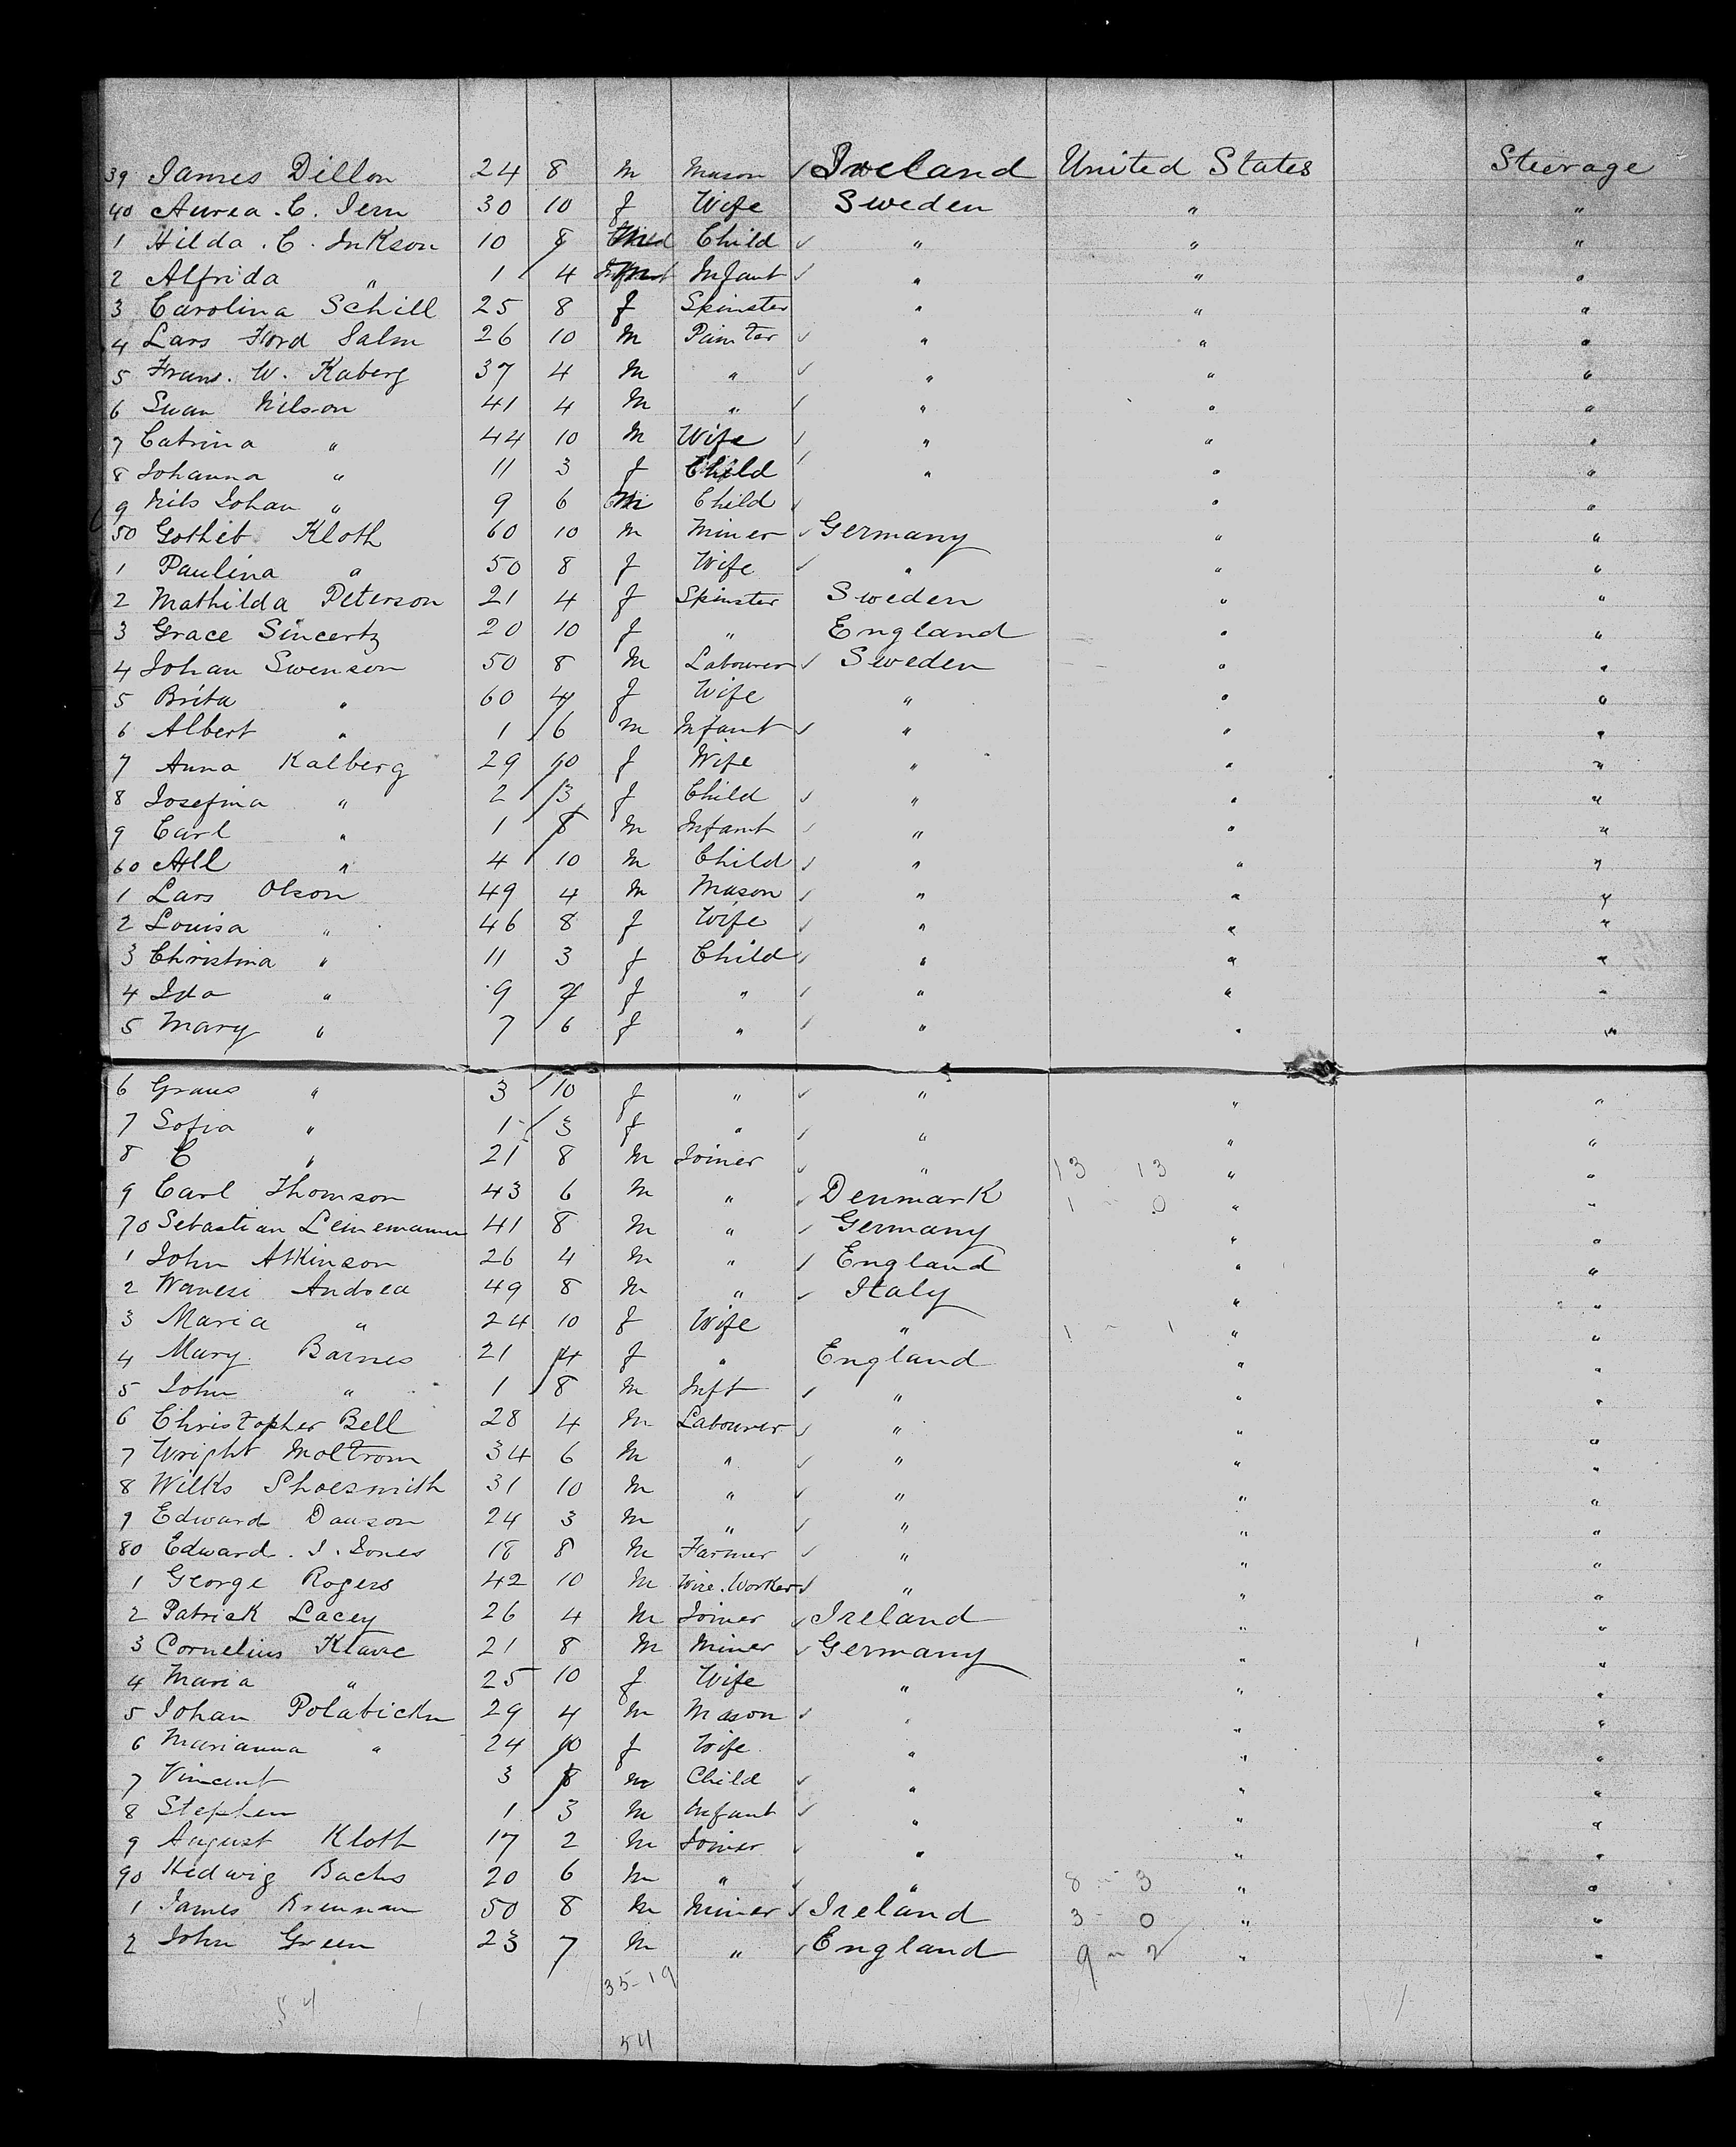 39 James Dillon 24 8 m Mason ✓ Ireland United States Steerage
40 Aurea . C . Jern 30 10 f Wife Sweden " "
1 Hilda . C . Inkson 10 8 m Child ✓ " " "
2 Alfrida " 1 / 4 m Infant ✓ " " "
3 Carolina Schill 25 8 f Spinster " " "
4 Lars Ford Salm 26 10 m Painter ✓ " " "
5 Frans. W. Kaberg 37 4 m " ✓ " " "
6 Swan Nilson 41 4 m " ✓ " " "
7 Catrina " 44 10 m Wife ✓ " " "
8 Johanna " 11 3 f Child ✓ " " "
9 Nils Johan " 9 6 m Child ✓ " "
50 Gotheb Kloth 60 10 m Miner ✓ Germany " "
1 Paulina " 50 8 f Wife ✓ " " "
2 Mathilda Peterson 21 4 f Spinster Sweden " "
3 Grace Sincertz 20 10 f " England " "
4 Johan Swenson 50 8 m Labourer ✓ Sweden " "
5 Brita " 60 4 f Wife " " "
6 Albert " 1 / 6 m Infant ✓ " " "
7 Anna Kalberg 29 10 f Wife " " "
8 Josefina " 2 / 3 f Child ✓ " " "
9 Carl " 1 / 8 m Infant ✓ " " "
60 All " 4 / 10 m Child ✓ " " "
1 Lars Olson 49 4 m Mason ✓ " " "
2 Louisa " 46 8 f Wife ✓ " " "
3 Christina " 11 3 f Child ✓ " " "
4 Ida " 9 4 f " ✓ " " "
5 Mary " 7 / 6 f " ✓ " " "
6 Graus " 3 / 10 f " ✓ " " "
7 Sofia " 1 / 3 f " ✓ " " "
8 C " 21 8 m Joiner ✓ " 13 13 " "
9 Carl Thomson 43 6 m " ✓ Denmark 1 - 0 " "
70 Sebastian Leinemann 41 8 m " ✓ Germany " "
1 John Atkinson 26 4 m " ✓ England " "
2 Wanesi Andrea 49 8 m " ✓ Italy " "
3 Maria " 24 10 f Wife " 1 - 1 " "
4 Mary. Barnes 21 4 f " England " "
5 John " 1 / 8 m Inft ✓ " " "
6 Christopher Bell 28 4 m Labourer ✓ " " "
7 Wright Moltrom 34 6 m " ✓ " " "
8 Wilks Shoesmith 31 10 m " ✓ " " "
9 Edward Dawson 24 3 m " ✓ " " "
80 Edward . J . Jones 18 8 m Farmer ✓ " " "
1 George Rogers 42 10 m Wire. Worker ✓ " " "
2 Patrick Lacey 26 4 m Joiner ✓ Ireland " "
3 Cornelius Klave 21 8 m Miner ✓ Germany " "
4 Maria " 25 10 f Wife " " "
5 Johan Polabickn 29 4 m Mason ✓ " " "
6 Marianna " 24 10 f Wife " " "
7 Vincent 3 / 8 m Child ✓ " " "
8 Stephen 1 / 3 m Infant ✓ " " "
9 August Kloth 17 2 m Joiner ✓ " " "
90 Hedwig Bachs 20 6 m " ✓ " 8 - 3 " "
1 James Brennan 50 8 m Miner ✓ Ireland 3 - 0 " "
2 John Green 23 7 m " ✓ England 9 - 2 " "
35-19
54
54